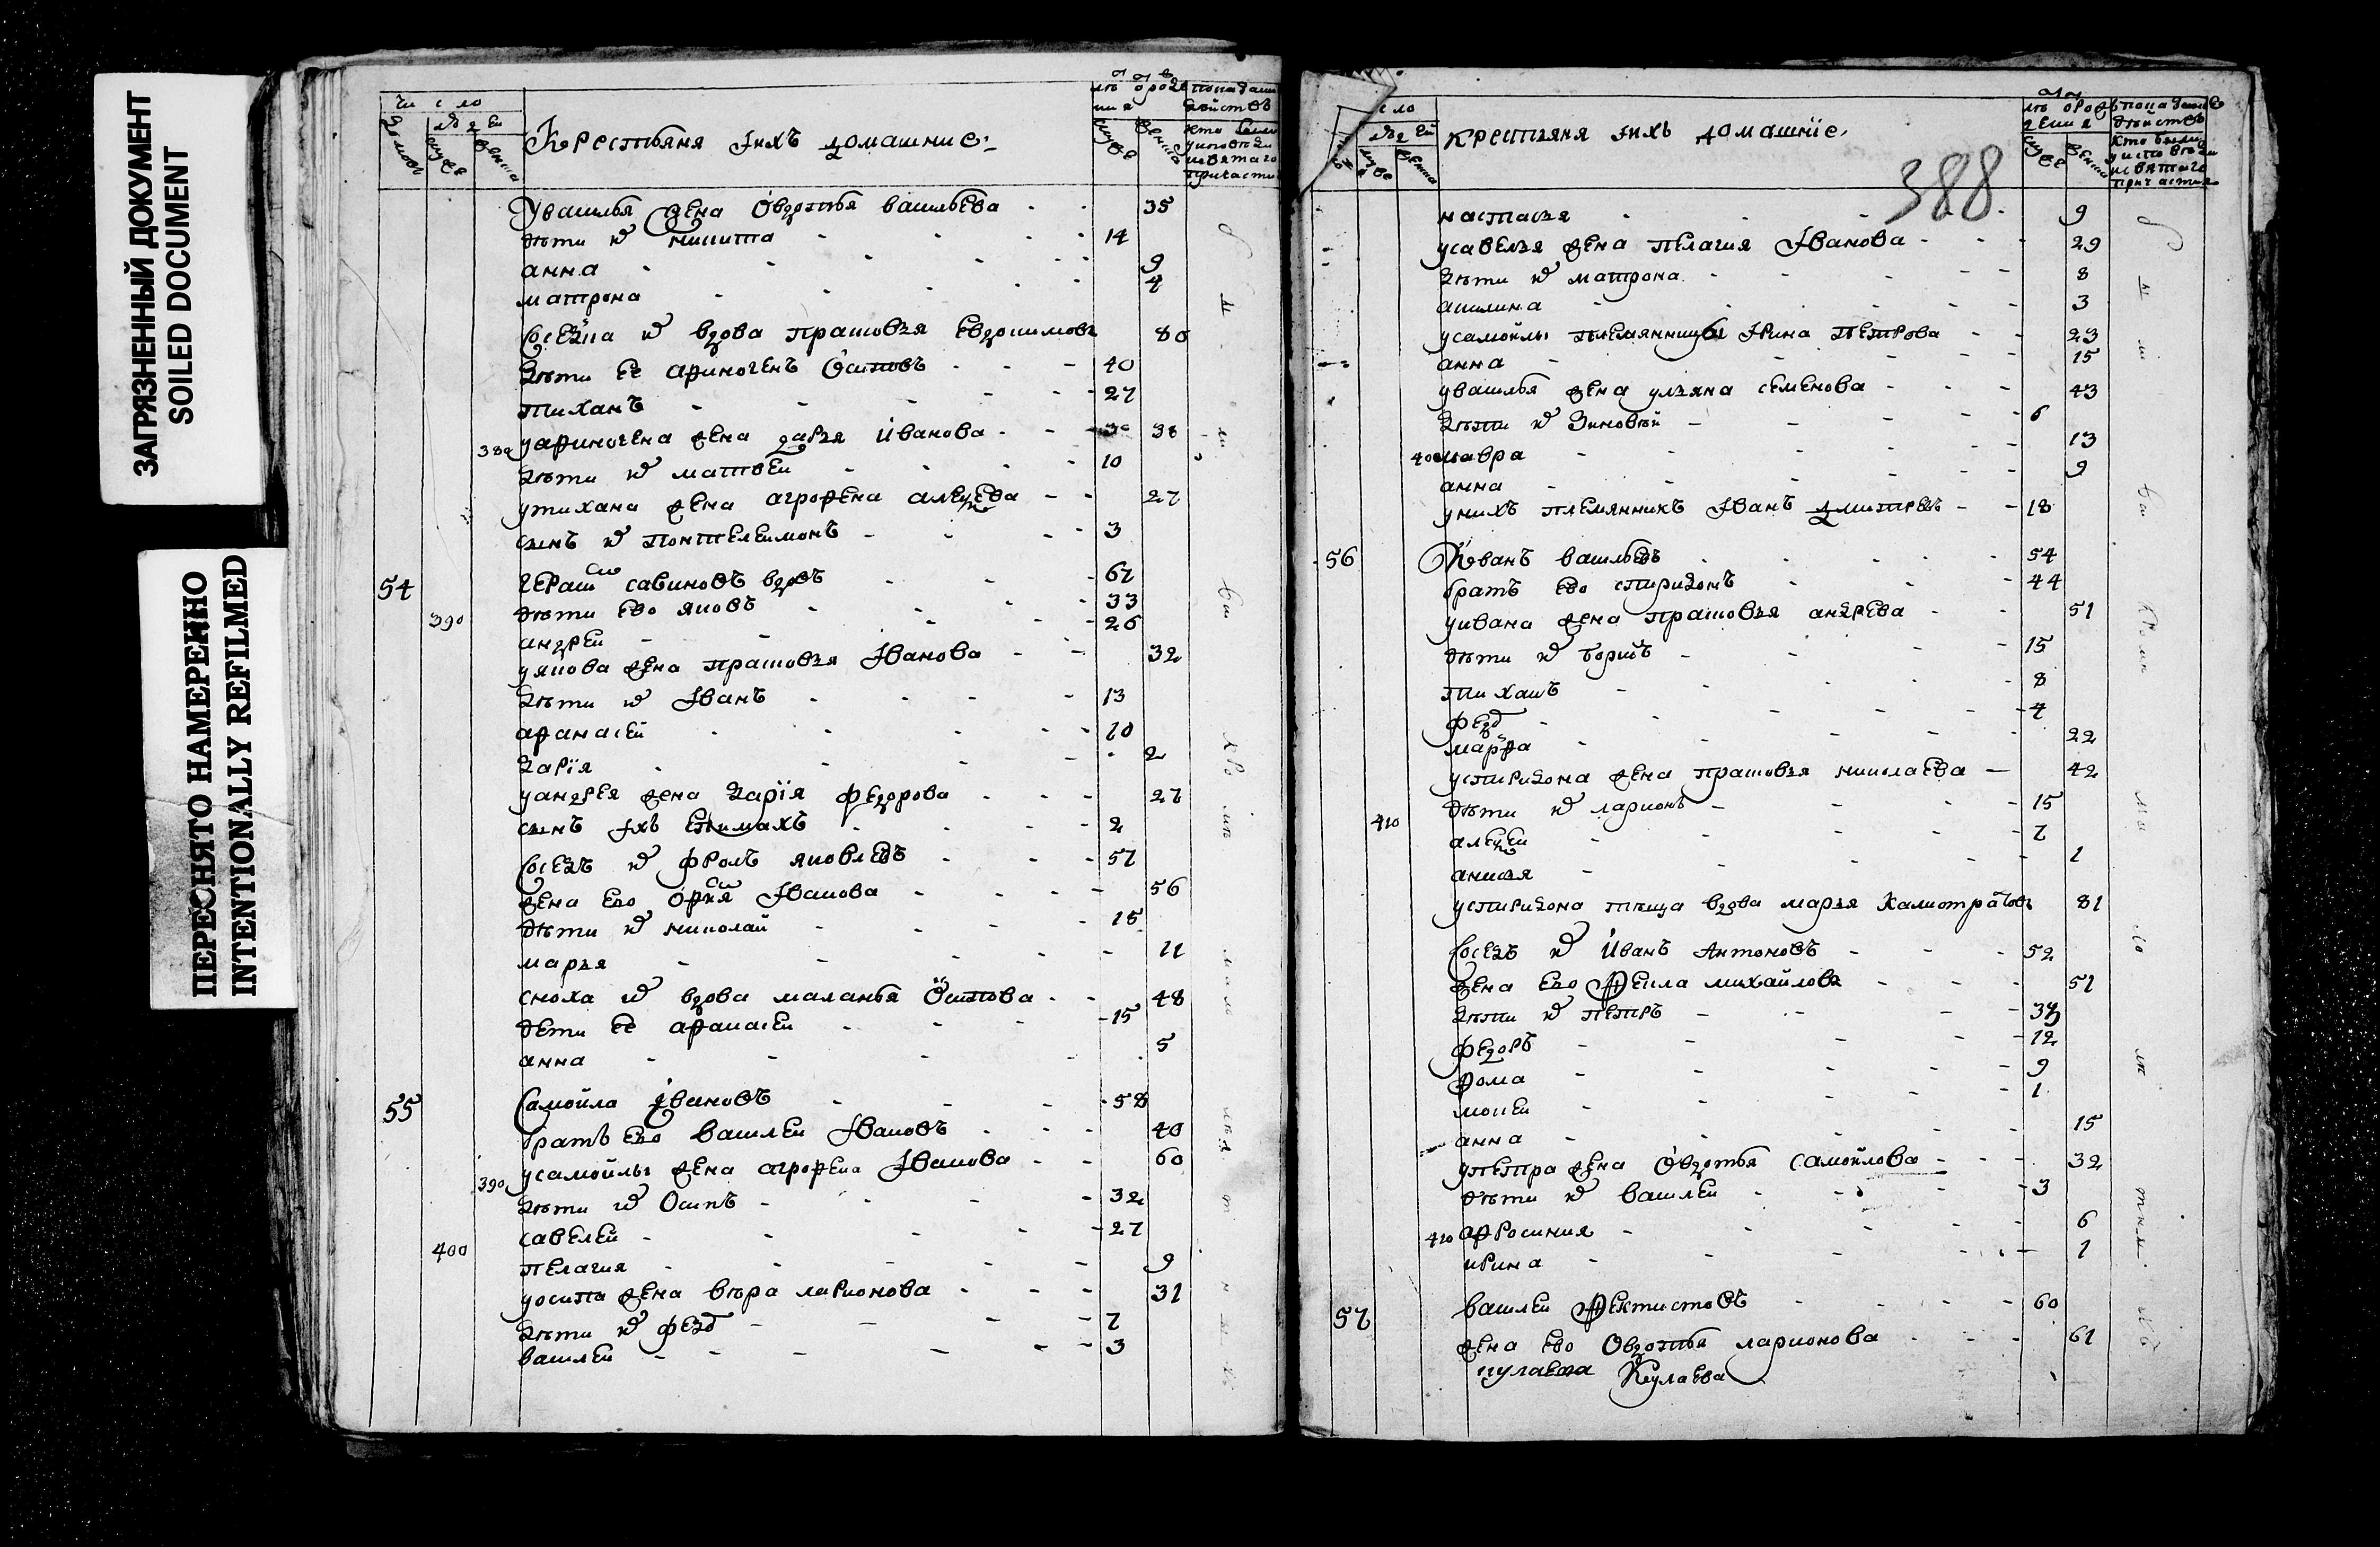 ЗАГРЯЗНЕННЫЙ ДОКУМЕНТ
SOILED DOCUMENT
ПЕРЕСНЯТО НАМЕРЕННО
INTENTIONALLY REFILMED
Число
людей
домовъ
муж
женск
Крестьяня Iихъ домашние
лѣт от рожде
ния
муж
женс
у василья жена Овдотья васильева 35
дѣти их никита 14
анна 9
матрона 4
Соседка их вдова прасковья Евдокимовa 80
дѣти ее афиногенъ Осиповъ 40
тиханъ 27
389 у афиногена жена дарья иванова 38
дѣти их матвеи 10
у тихана жена агрофена алексеева 27
сынъ их понтелеимонъ 3
54 герасим савиновъ вдовъ 67
390 дѣти ево яковъ 33
андреи 26
у якова жена прасковья Iванова 32
дѣти их Iванъ 13
афанасеи 10
дарїя 2
у андрея жена дарїя федорова 27
сынъ Iхъ епимахъ 2
Соседъ их фролъ яковлевъ 57
жена ево офимя Iванова 56
дѣти их николаи 15
марья 11
сноха их вдова маланья Осипова 48
дети ее афанасеи 15
анна 5
55 Самойла Iвановъ 58
братъ ево василеи Iвановъ 40
390 у самойлы жена агрофена Iванова 60
дѣти их Осипъ 32
савелеи 27
400 пелагия 9
у осипа жена вѣра ларионова 31
дѣти их федо 7
василеи 3
388
число
людей
муж
женск
крестьяня Iихъ домашнїе
лѣт орож
дения
муж
женс
кто были
у исповѣди
и святаго
причастия
настасья 9
у савелья жена пелагия Iванова 29
дѣти их матрона 8
акилина 3
у самойлы племянницы Iрина петрова 23
анна 15
у василья жена ульяна семенова 43
дѣти их Зиновѣй 6
400 мавра 13
анна 9
у нихъ племянникъ Iванъ дмитревъ 18
56 Иванъ васильевъ 54
братъ ево спиридонъ 44
у ивана жена прасковья андрева 51
дѣти их борисъ 15
тиханъ 8
федо 4
марфа 22
у спиридона жена прасковья николаева 42
дѣти их ларионъ 15
410 алексеи 7
анисья 1
у спиридона тьеща вдова марья Калистратова 81
Соседъ их Иванъ Антоновъ 52
жена ево Фекла михайлова 51
дѣти их петръ 33
федоръ 12
фома 9
мосеи 1
анна 15
у петра жена Овдотья самойлова 32
дѣти их василеи 3
410 афросиния 6
ирина 1
57 василеи Фектистовъ 60
жена ево Овдотья ларионова 61
кулаева Кулаева